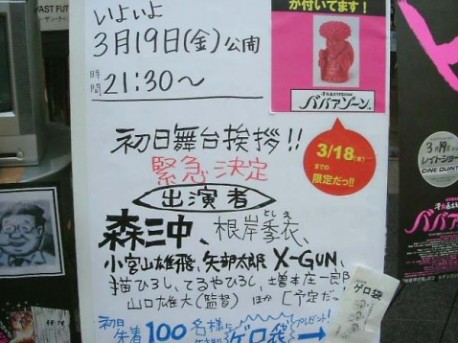 いよいよ
3月19日(金)公開
時間 21:30〜
初日舞台挨拶!!
緊急決定
出演者
森三中、根岸季衣、
としえ
小宮山雄飛、矢部太郎、X-GUN、
猫ひろし、てるやひろし、増本庄一郎
山口雄大(監督) ほか [予定だっ
初日先着100名様に
ゲロ袋
プレゼント!
が付いてます!
ババアゾーン
3/18(木)
までの
限定だっ!!
ゲロ袋
AST FUTURE
3月19
レイトショー
CINE QUINT
ババア